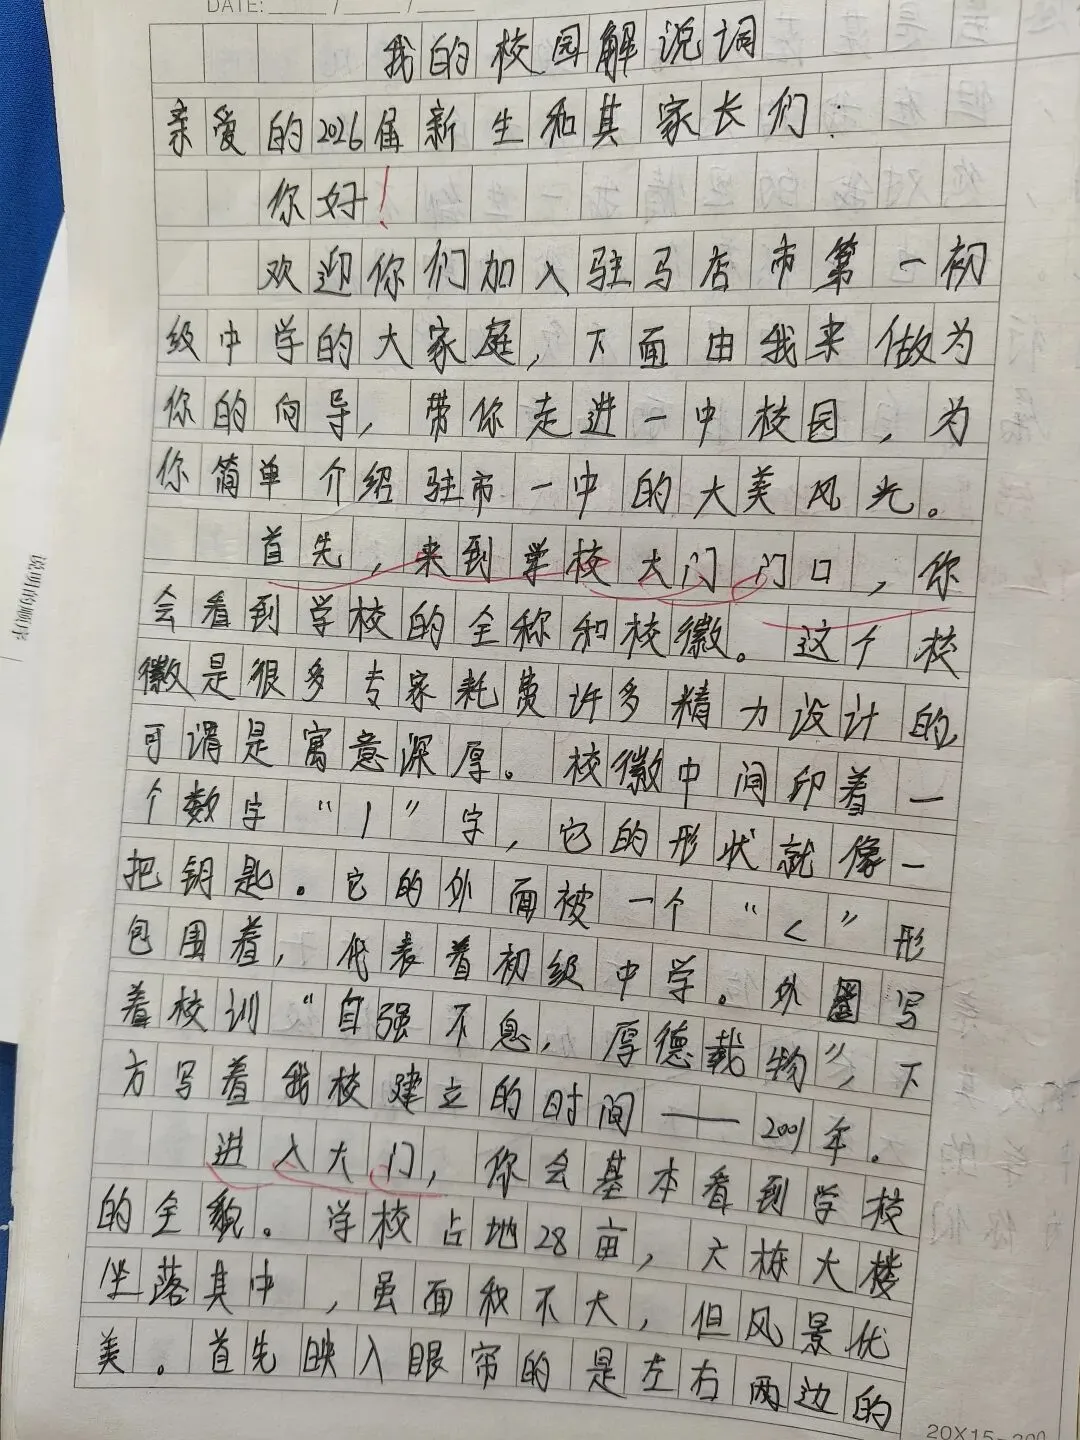 DATE: / /
我的校园解说词
亲爱的2026届新生和其家长们：
你好！
欢迎你们加入驻马店市第一初
级中学的大家庭，下面由我来做为
你的向导，带你走进一中校园，为
你简单介绍驻市一中的大美风光。
首先，来到学校大门门口，你
会看到学校的全称和校徽。这个校
徽是很多专家耗费许多精力设计的，
可谓是寓意深厚。校徽中间印着一
个数字“1”字，它的形状就像一
把钥匙。它的外面被一个“<”形
包围着，代表着初级中学。外圈写
着校训“自强不息，厚德载物”，下
方写着我校建立的时间——2001年。
进入大门，你会基本看到学校
的全貌。学校占地28亩，六栋大楼
坐落其中，虽面积不大，但风景优
美。首先映入眼帘的是左右两边的
说明的顺序